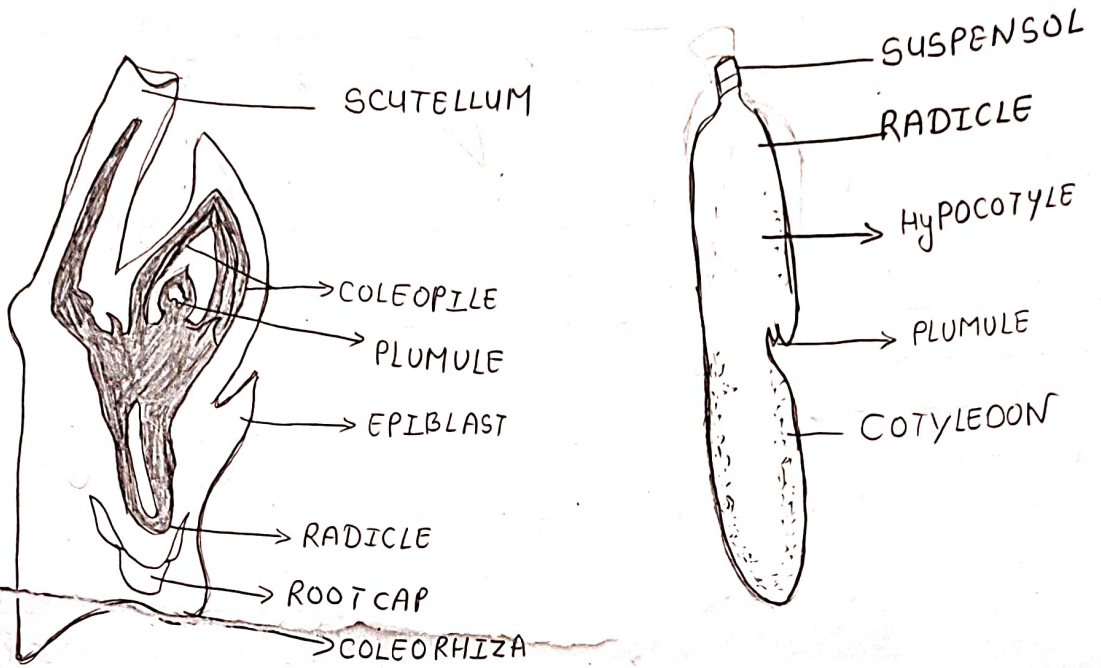 SCUTELLUM
COLEOPILE
PLUMULE
EPIBLAST
RADICLE
ROOT CAP
COLEORHIZA
SUSPENSOL
RADICLE
HyPOCOTYLE
PLUMULE
COTYLEDON